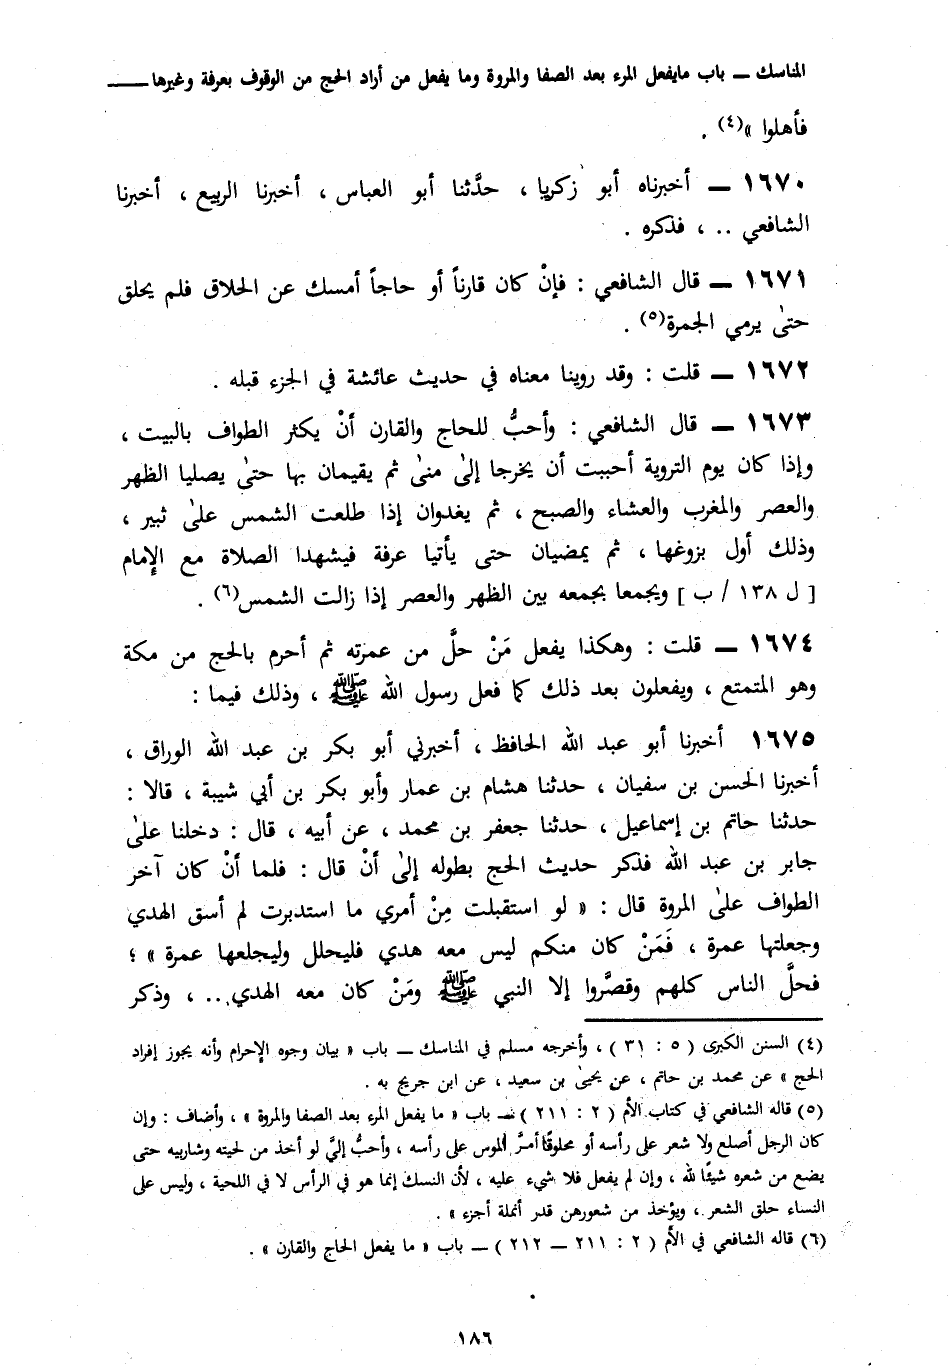 المناسك ــ باب مايفعل المرء بعد الصفا والمروة وما يفعل من أراد الحج من الوقوف بعرفة وغيرها ــــ
فأهلوا »(٤) .
١٦٧٠ ــ أخبرناه أبو زكريا ، حدَّثنا أبو العباس ، أخبرنا الربيع ، أخبرنا
الشافعي .. ، فذكره .
١٦٧١ ــ قال الشافعي : فإنْ كان قارناً أو حاجاً أمسك عن الحلاق فلم يحلق
حتىٰ يرمي الجمرة(٥) .
١٦٧٢ ــ قلت : وقد روينا معناه في حديث عائشة في الجزء قبله .
١٦٧٣ ــ قال الشافعي : وأحبُّ للحاج والقارن أنْ يكثر الطواف بالبيت ،
وإذا كان يوم التروية أحببت أن يخرجا إلىٰ منىٰ ثم يقيمان بها حتىٰ يصليا الظهر
والعصر والمغرب والعشاء والصبح ، ثم يغدوان إذا طلعت الشمس علىٰ ثبير ،
وذلك أول بزوغها ، ثم يمضيان حتى يأتيا عرفة فيشهدا الصلاة مع الإمام
[ ل ١٣٨ / ب ] ويجمعا بجمعه بين الظهر والعصر إذا زالت الشمس(٦) .
١٦٧٤ ــ قلت : وهكذا يفعل مَنْ حلَّ من عمرته ثم أحرم بالحج من مكة
وهو المتمتع ، ويفعلون بعد ذلك كما فعل رسول الله ﷺ ، وذلك فيما :
١٦٧٥ أخبرنا أبو عبد الله الحافظ ، أخبرني أبو بكر بن عبد الله الوراق ،
أخبرنا الحسن بن سفيان ، حدثنا هشام بن عمار وأبو بكر بن أبي شيبة ، قالا :
حدثنا حاتم بن إسماعيل ، حدثنا جعفر بن محمد ، عن أبيه ، قال : دخلنا علىٰ
جابر بن عبد الله فذكر حديث الحج بطوله إلىٰ أنْ قال : فلما أنْ كان آخر
الطواف علىٰ المروة قال : « لو استقبلت مِنْ أمري ما استدبرت لم أسق الهدي
وجعلتها عمرة ، فَمَنْ كان منكم ليس معه هدي فليحلل وليجلعها عمرة » ؛
فحلَّ الناس كلهم وقصَّروا إلا النبي ﷺ ومَنْ كان معه الهدي .. ، وذكر
(٤) السنن الكبرى ( ٥ : ٣١ ) ، وأخرجه مسلم في المناسك ــ باب « بيان وجوه الإحرام وأنه يجوز إفراد
الحج » عن محمد بن حاتم ، عن يحيىٰ بن سعيد ، عن ابن جريج به .
(٥) قاله الشافعي في كتاب الأم ( ٢ : ٢١١ ) ــ باب « ما يفعل المرء بعد الصفا والمروة » ، وأضاف : وإن
كان الرجل أصلع ولا شعر على رأسه أو محلوقًا أمرَّ الموس على رأسه ، وأحبُّ إليَّ لو أخذ من لحيته وشاربيه حتى
يضع من شعره شيئًا لله ، وإن لم يفعل فلا شيء عليه ، لأن النسك إنما هو في الرأس لا في اللحية ، وليس على
النساء حلق الشعر ، ويؤخذ من شعورهن قدر أنملة أجزء » .
(٦) قاله الشافعي في الأم ( ٢ : ٢١١ ــ ٢١٢ ) ــ باب « ما يفعل الحاج والقارن » .
١٨٦